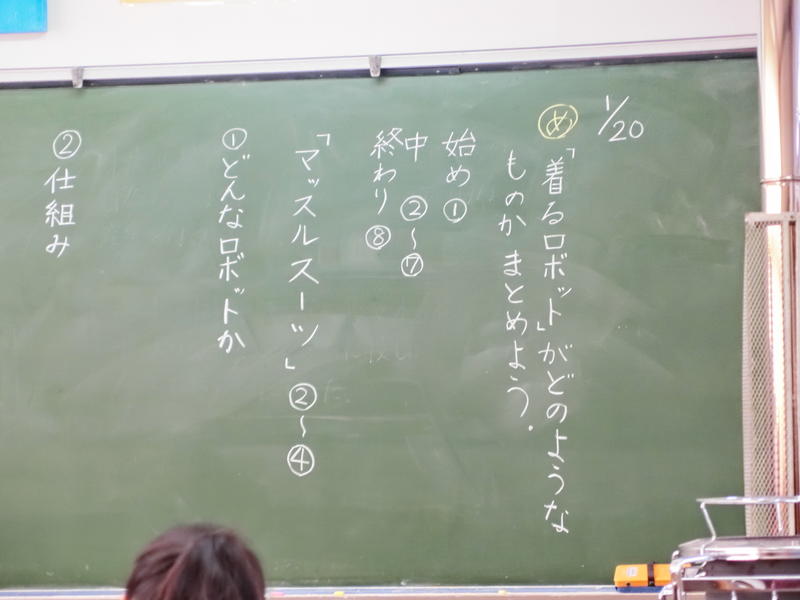 1/20
め 「着るロボット」がどのような
ものか まとめよう.
始め ①
中 ②〜⑦
終わり ⑧
「マッスルスーツ」 ②〜④
①どんなロボットか
②仕組み